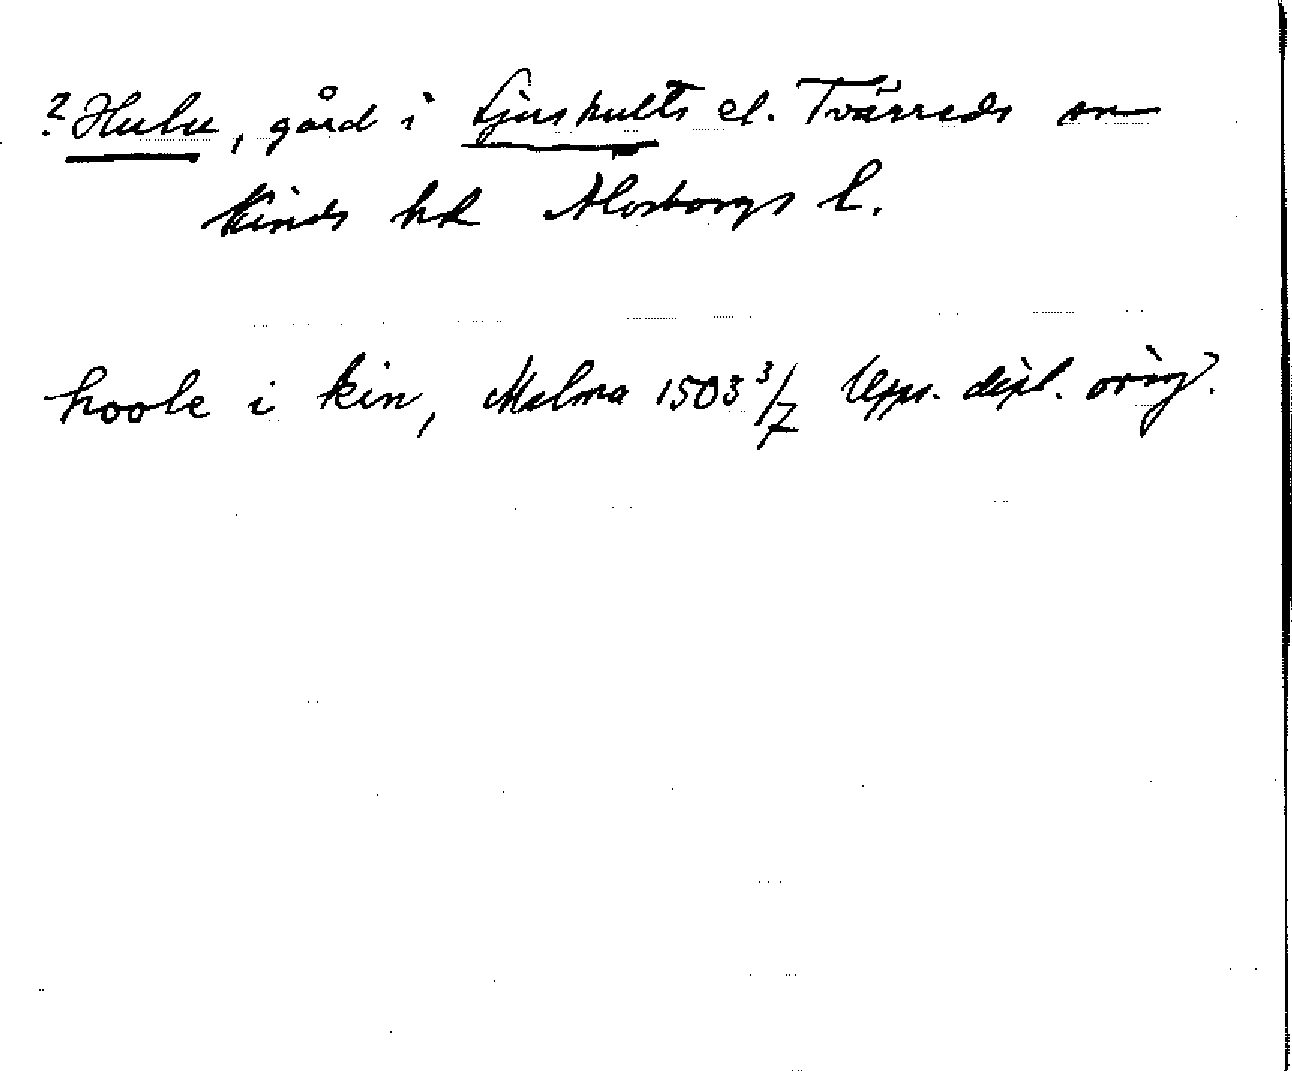 ? Hulu, gård i Ljushults el. Tvärreds sn
Kinds hd Älvsborgs l.
hoole i kin, Malma 1503 3/7 Upps. dipl. orig.